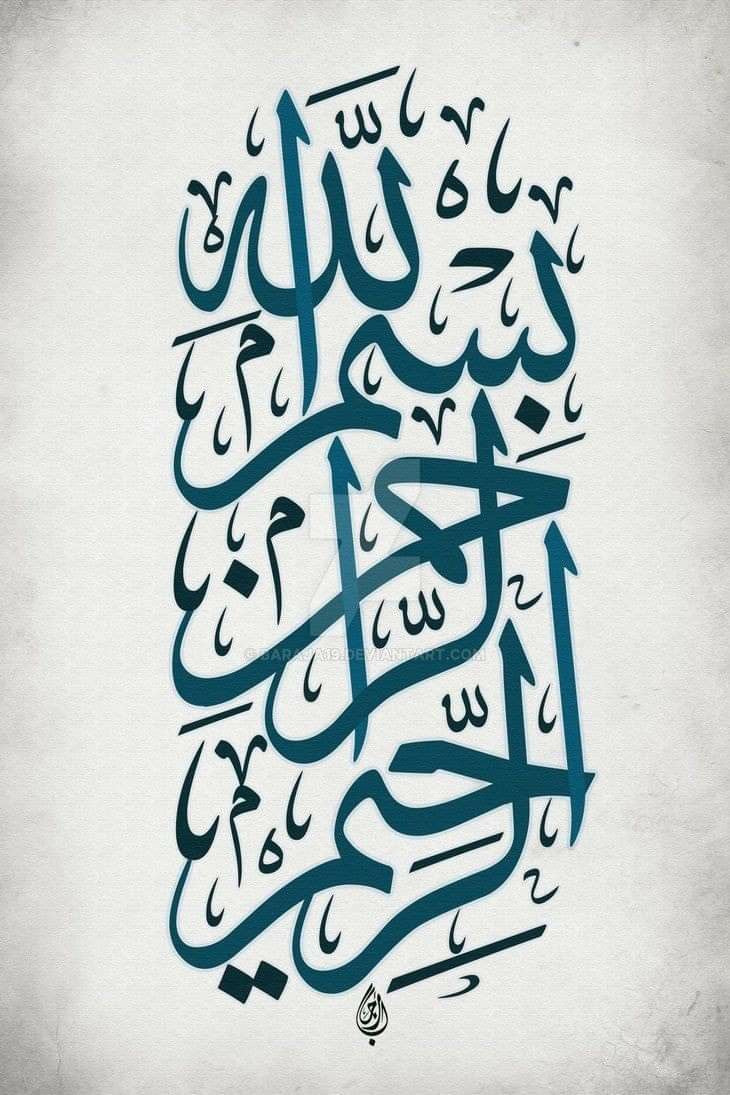 بِسْمِ اللَّهِ
الرَّحْمَنِ
الرَّحِيمِ
© BARAJA19.DEVIANTART.COM